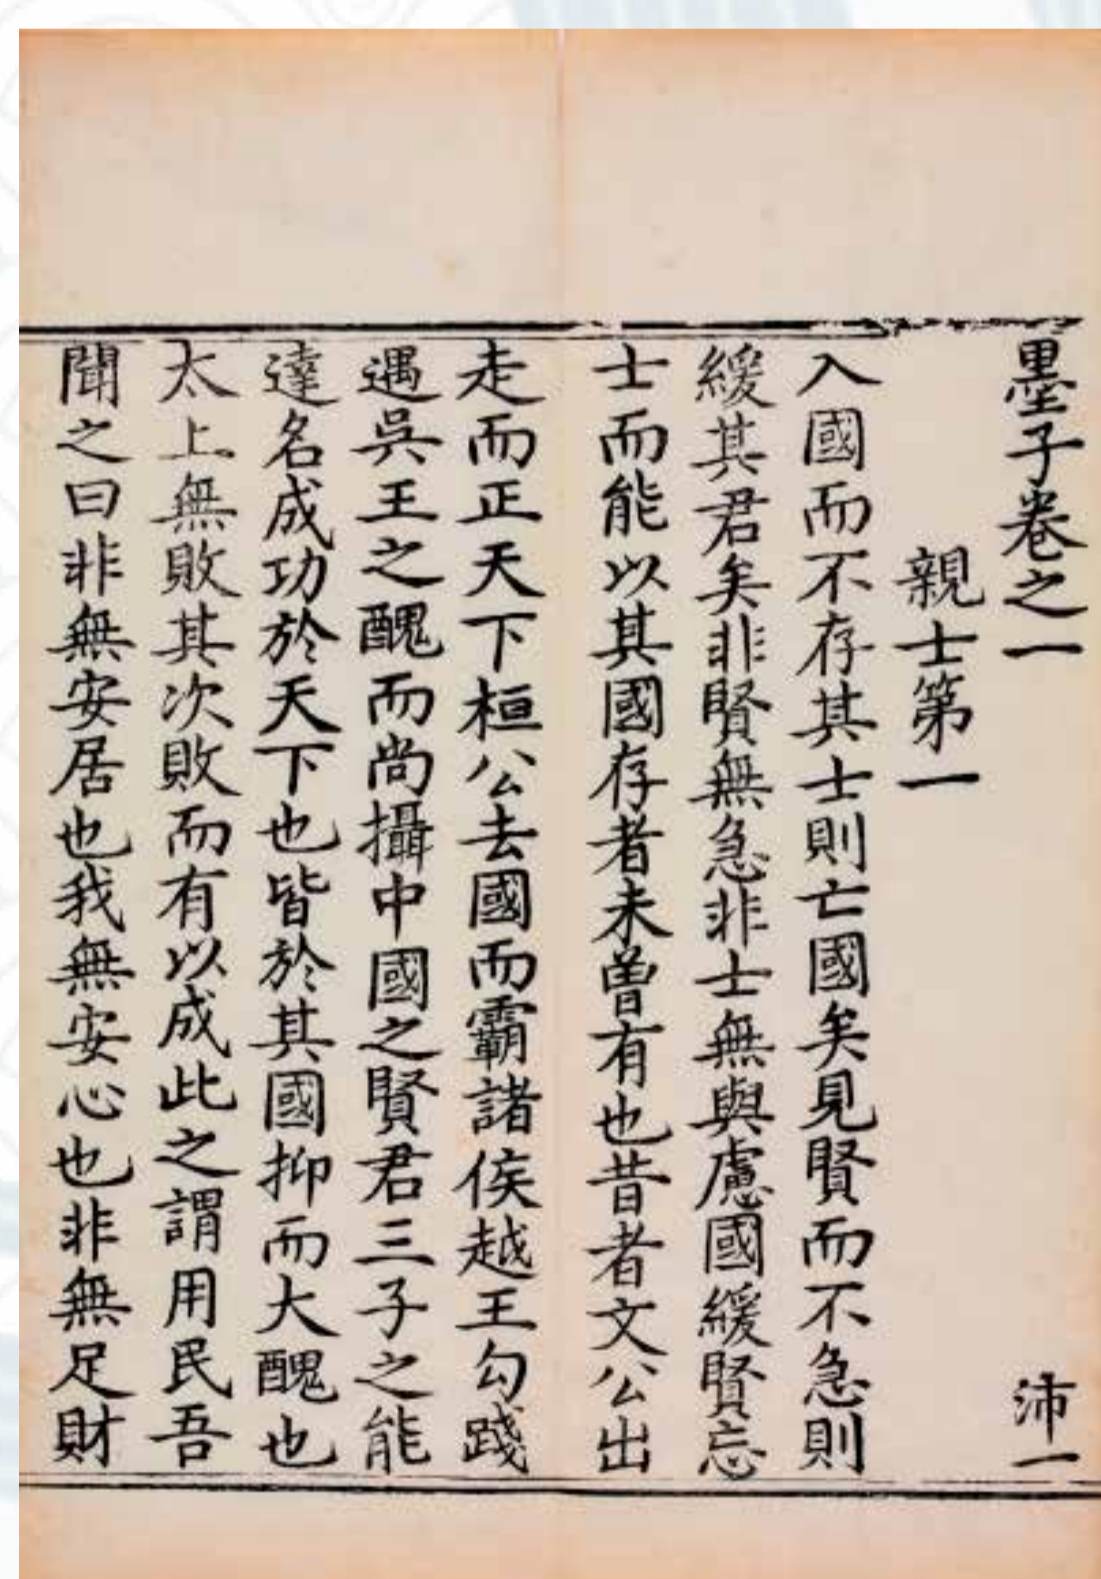 墨子卷之一 沛一
親士第一
入國而不存其士則亡國矣見賢而不急則
緩其君矣非賢無急非士無與慮國緩賢忘
士而能以其國存者未曾有也昔者文公出
走而正天下桓公去國而霸諸侯越王勾踐
遇吳王之醜而尚攝中國之賢君三子之能
達名成功於天下也皆於其國抑而大醜也
太上無敗其次敗而有以成此之謂用民吾
聞之曰非無安居也我無安心也非無足財